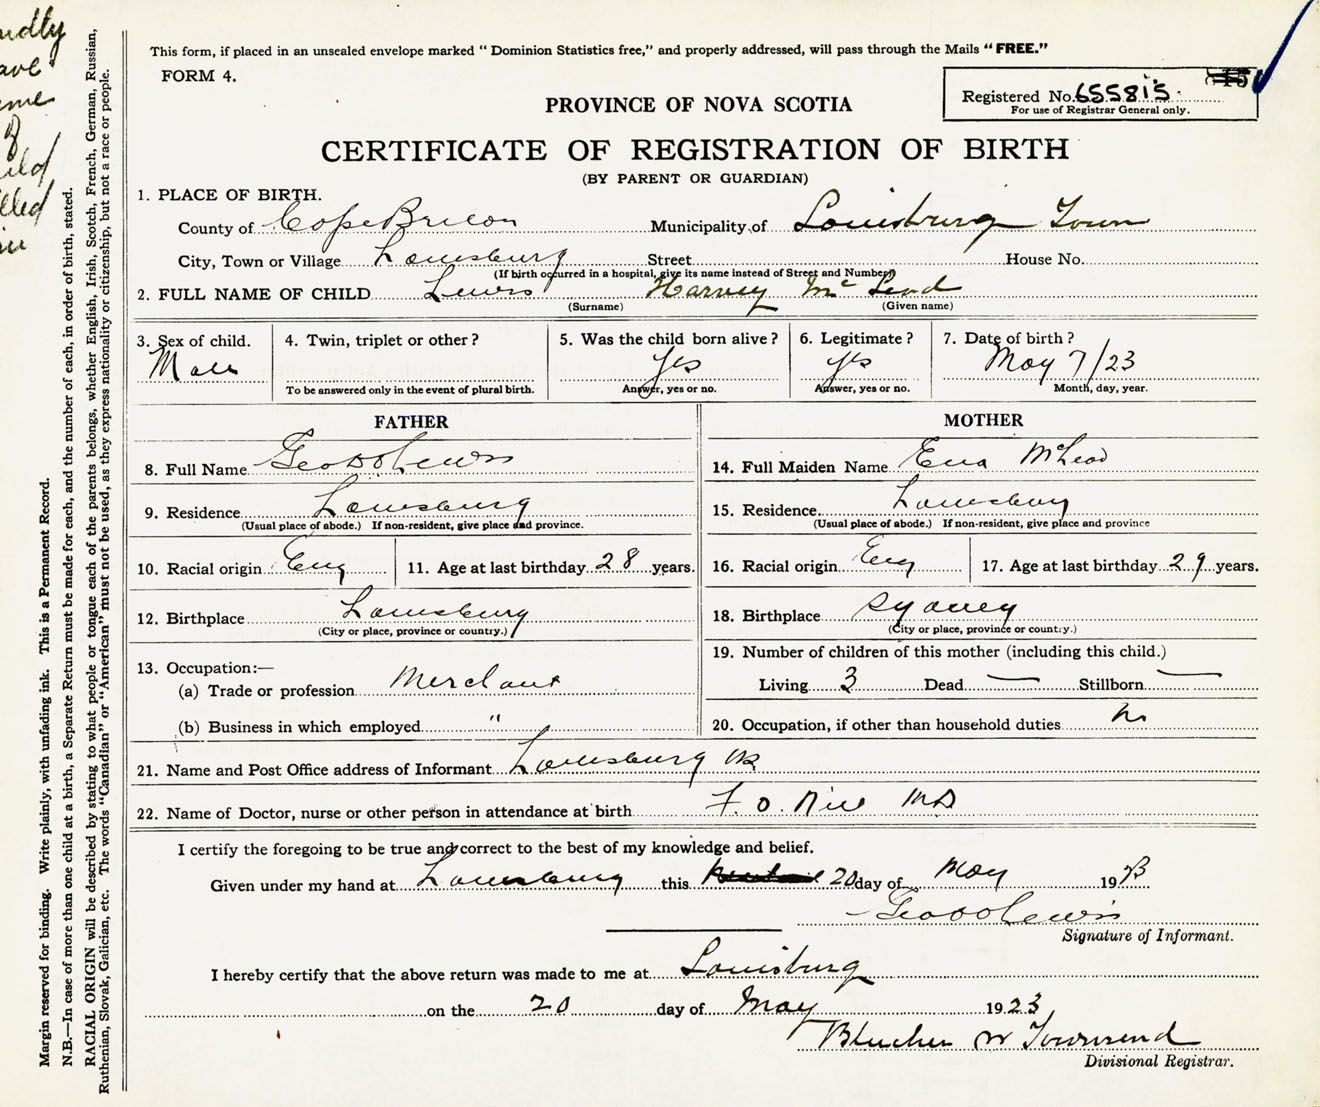 This form, if placed in an unsealed envelope marked “Dominion Statistics free,” and properly addressed, will pass through the Mails “FREE.”
FORM 4.
Registered No. 655815.
For use of Registrar General only.
PROVINCE OF NOVA SCOTIA
CERTIFICATE OF REGISTRATION OF BIRTH
(BY PARENT OR GUARDIAN)
1. PLACE OF BIRTH.
County of Cape Breton Municipality of Louisburg Town
City, Town or Village Louisburg Street House No.
(If birth occurred in a hospital, give its name instead of Street and Number)
2. FULL NAME OF CHILD Lewis Harvey McLeod
(Surname) (Given name)
3. Sex of child. Male
4. Twin, triplet or other?
To be answered only in the event of plural birth.
5. Was the child born alive? Yes
Answer, yes or no.
6. Legitimate? Yes
Answer, yes or no.
7. Date of birth? May 7/23
Month, day, year.
FATHER
8. Full Name Geo Lewis
9. Residence Louisburg
(Usual place of abode.) If non-resident, give place and province.
10. Racial origin Eng 11. Age at last birthday 28 years.
12. Birthplace Louisburg
(City or place, province or country.)
13. Occupation:—
(a) Trade or profession Merchant
(b) Business in which employed "
MOTHER
14. Full Maiden Name McLeod
15. Residence Louisburg
(Usual place of abode.) If non-resident, give place and province
16. Racial origin Eng 17. Age at last birthday 29 years.
18. Birthplace Sydney
(City or place, province or country.)
19. Number of children of this mother (including this child.)
Living 3 Dead — Stillborn —
20. Occupation, if other than household duties
21. Name and Post Office address of Informant Louisburg
22. Name of Doctor, nurse or other person in attendance at birth F. O. MD
I certify the foregoing to be true and correct to the best of my knowledge and belief.
Given under my hand at Louisburg this 20 day of May 1923
Geo Lewis
Signature of Informant.
I hereby certify that the above return was made to me at Louisburg
on the 20 day of May 1923
Blucher W Townsend
Divisional Registrar.
Margin reserved for binding. Write plainly, with unfading ink. This is a Permanent Record.
N.B.—In case of more than one child at a birth, a Separate Return must be made for each, and the number of each, in order of birth, stated.
RACIAL ORIGIN will be described by stating to what people or tongue each of the parents belongs, whether English, Irish, Scotch, French, German, Russian,
Ruthenian, Slovak, Galician, etc. The words “Canadian” or “American” must not be used, as they express nationality or citizenship, but not a race or people.